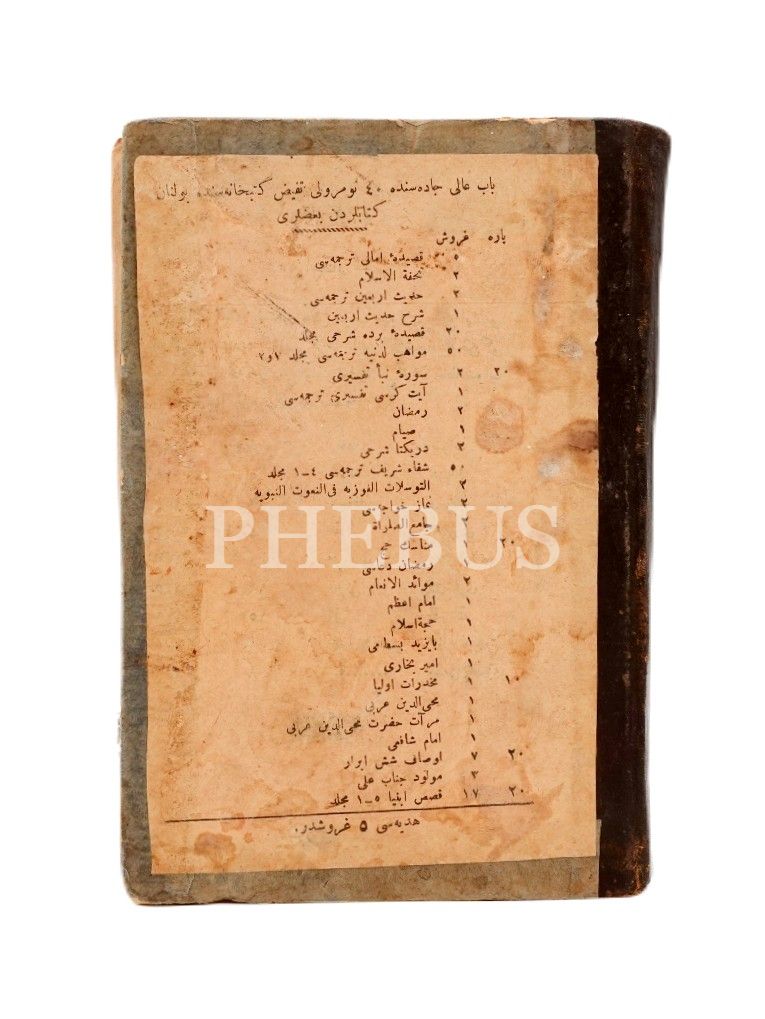 باب عالی جاده‌سنده ٤٠ نومرولی تفیض کتبخانه‌سنده بولنان
کتابلردن بعضلری
پاره غروش
٥ قصیدهٔ امالی ترجمه‌سی
٢ تحفة الاسلام
٢ حدیث اربعین ترجمه‌سی
١ شرح حدیث اربعین
٢٠ قصیدهٔ برده شرحی مجلد
٥٠ مواهب لدنیه ترجمه‌سی مجلد ١و٢
٢٠ ٢ سورهٔ نبأ تفسیری
١ آیت کرسی تفسیری ترجمه‌سی
٢ رمضان
١ صیام
٣ دریکتا شرحی
٥٠ شفاء شریف ترجمه‌سی ٤-١ مجلد
٣ التوسلات الفوزیه فی‌النعوت النبویه
٢ نماز خواجه‌سی
جامع الصلواة
٢٠ ١ مناسك حج
١ رمضان دعاسی
٢ موائد الانعام
١ امام اعظم
١ حجةاسلام
١ بایزید بسطامی
١ امیر بخاری
١٠ ١ مخدرات اولیا
١ محی‌الدین عربی
١ مرآت حضرت محی‌الدین عربی
١ امام شافعی
٢٠ ٧ اوصاف شش ابرار
٣ مولود جناب علی
٢٠ ١٧ قصص انبیا ٥-١ مجلد
هدیه‌سی ٥ غروشدر.
PHEBUS